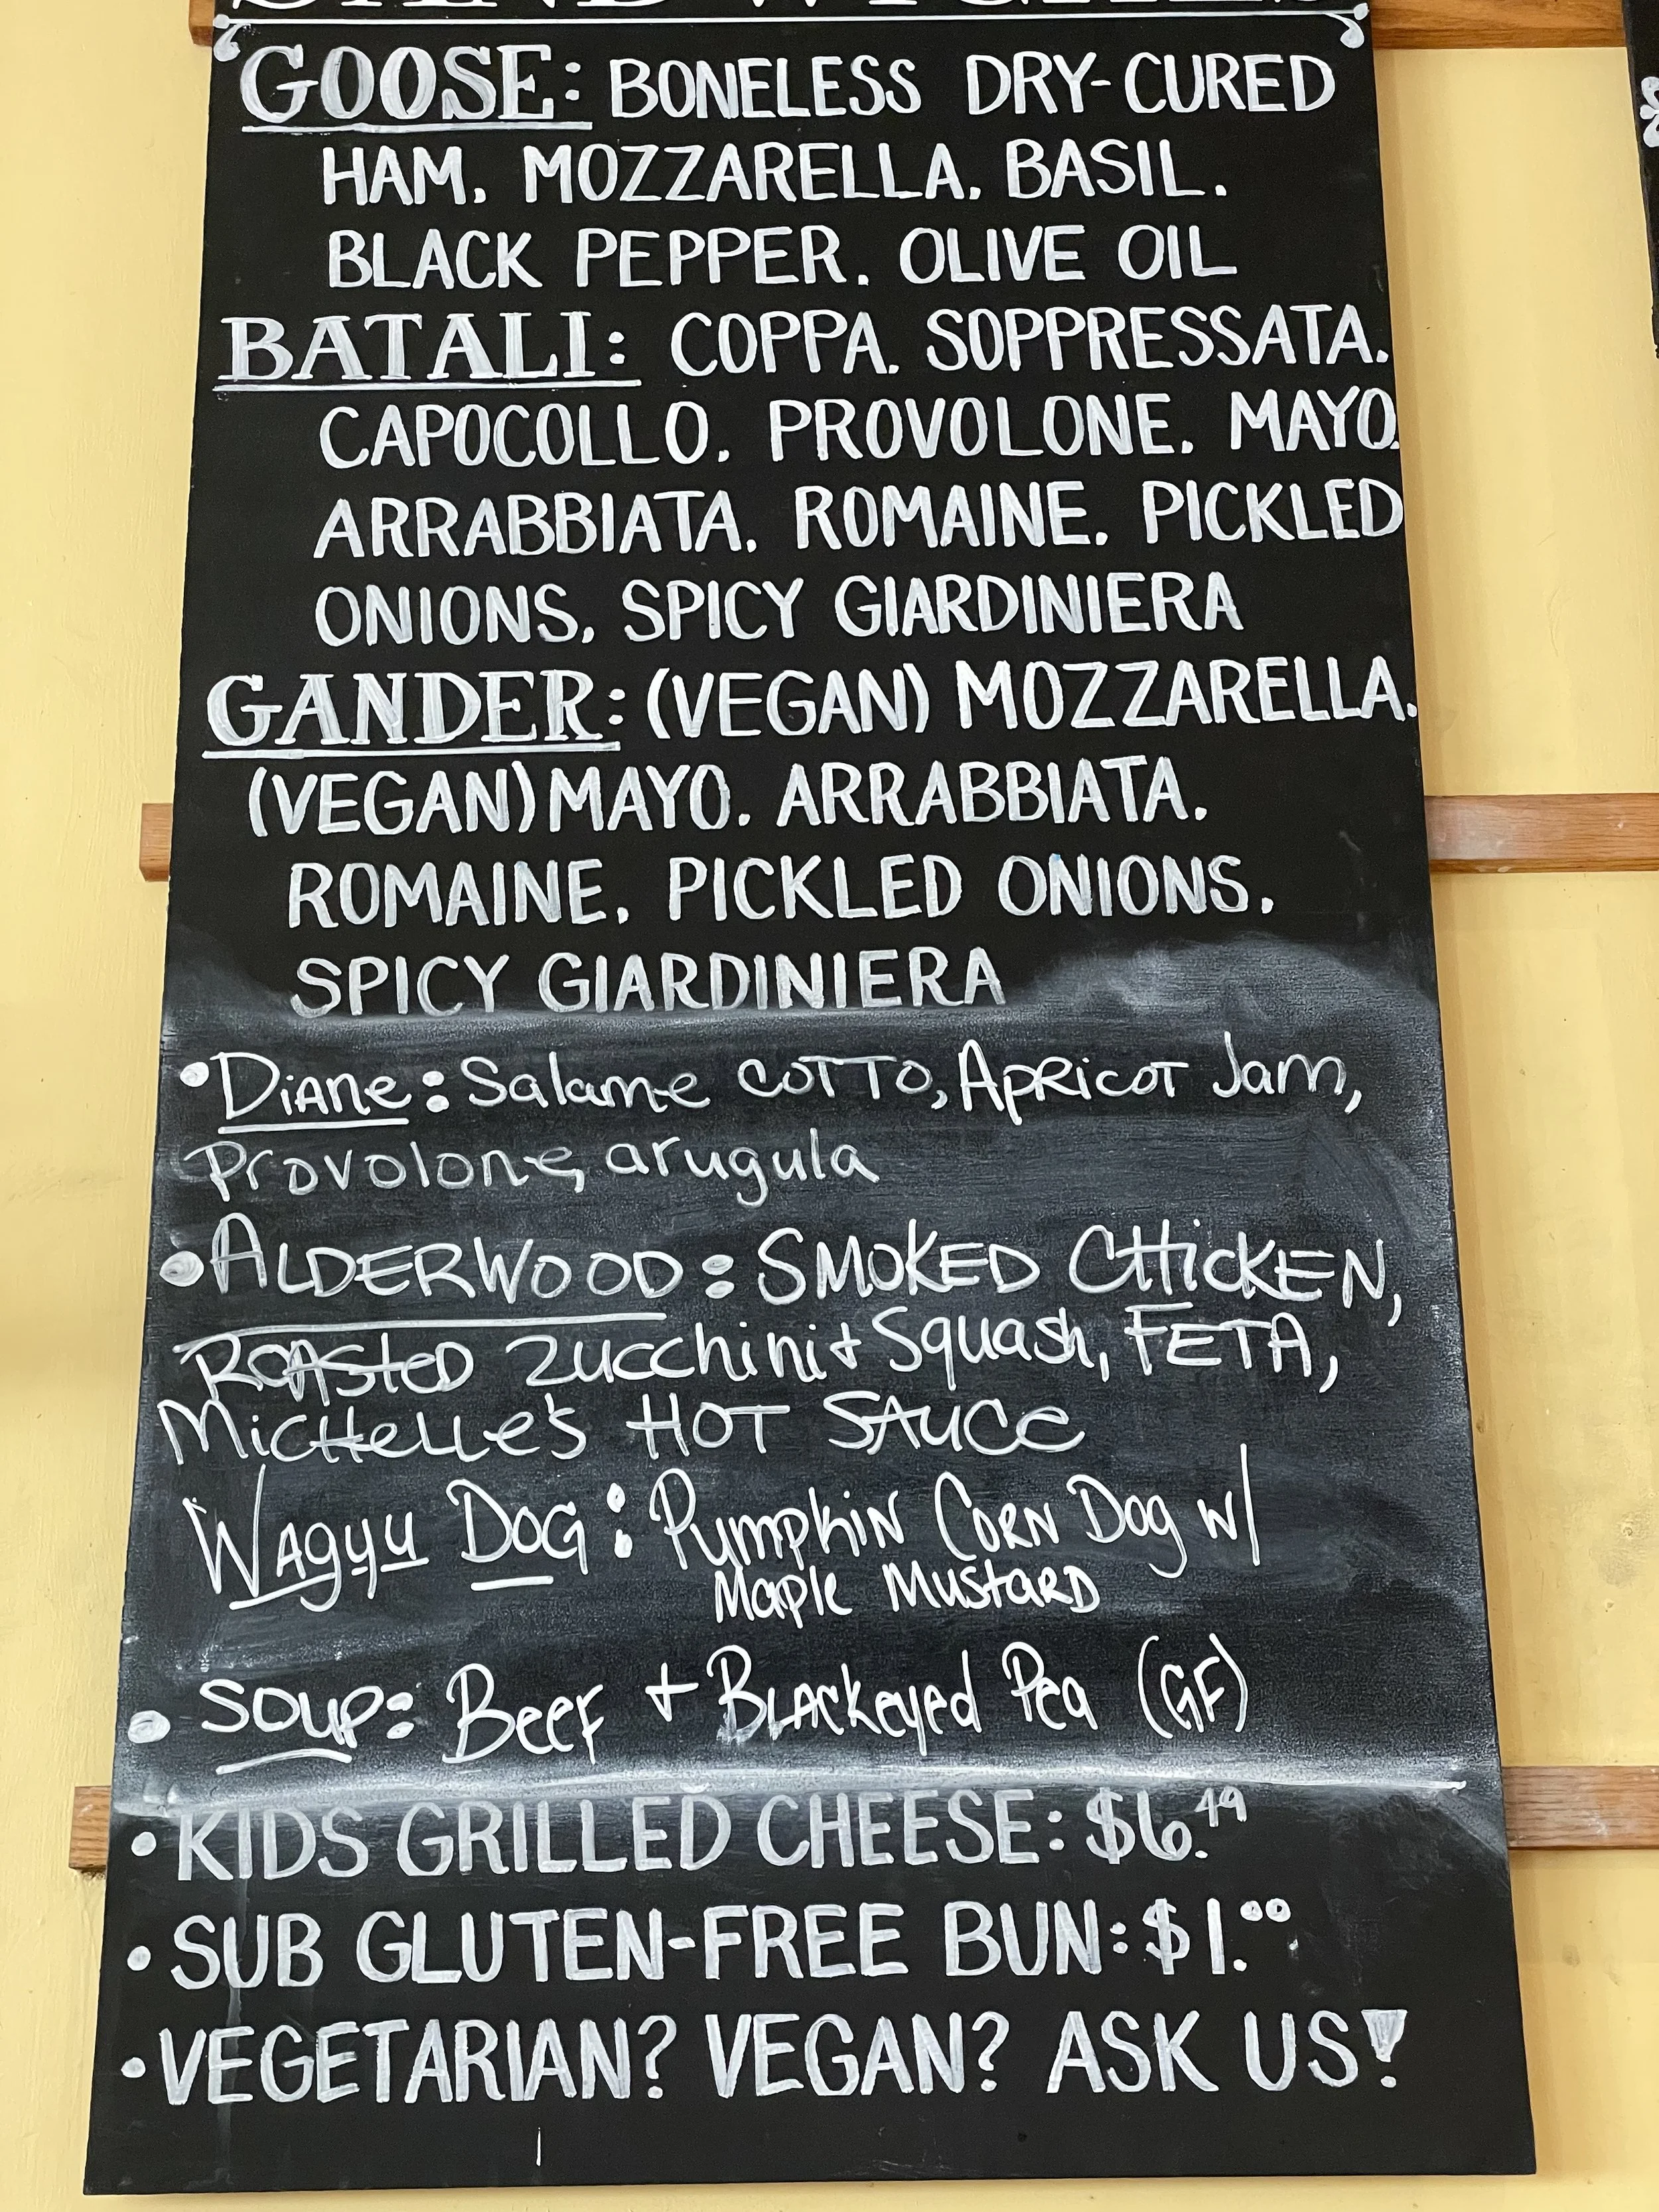 SANDWICHES
GOOSE: BONELESS DRY-CURED
HAM. MOZZARELLA. BASIL.
BLACK PEPPER. OLIVE OIL
BATALI: COPPA. SOPPRESSATA.
CAPOCOLLO. PROVOLONE. MAYO.
ARRABBIATA. ROMAINE. PICKLED
ONIONS. SPICY GIARDINIERA
GANDER: (VEGAN) MOZZARELLA.
(VEGAN) MAYO. ARRABBIATA.
ROMAINE. PICKLED ONIONS.
SPICY GIARDINIERA
• DiANe: Salame COTTO, ApRicoT Jam,
Provolone, arugula
• ALDERWOOD: SMOKED CHicKEN,
ROASteD Zucchini + Squash, FETA,
MicHeLLe's HOT SAUCe
WAgyu DOG: PumpkiN CORN Dog w/
Maple MustaRD
• SOUP: Beef + BLAckeyed Pea (GF)
• KIDS GRILLED CHEESE: $6.49
• SUB GLUTEN-FREE BUN: $1.00
• VEGETARIAN? VEGAN? ASK US!